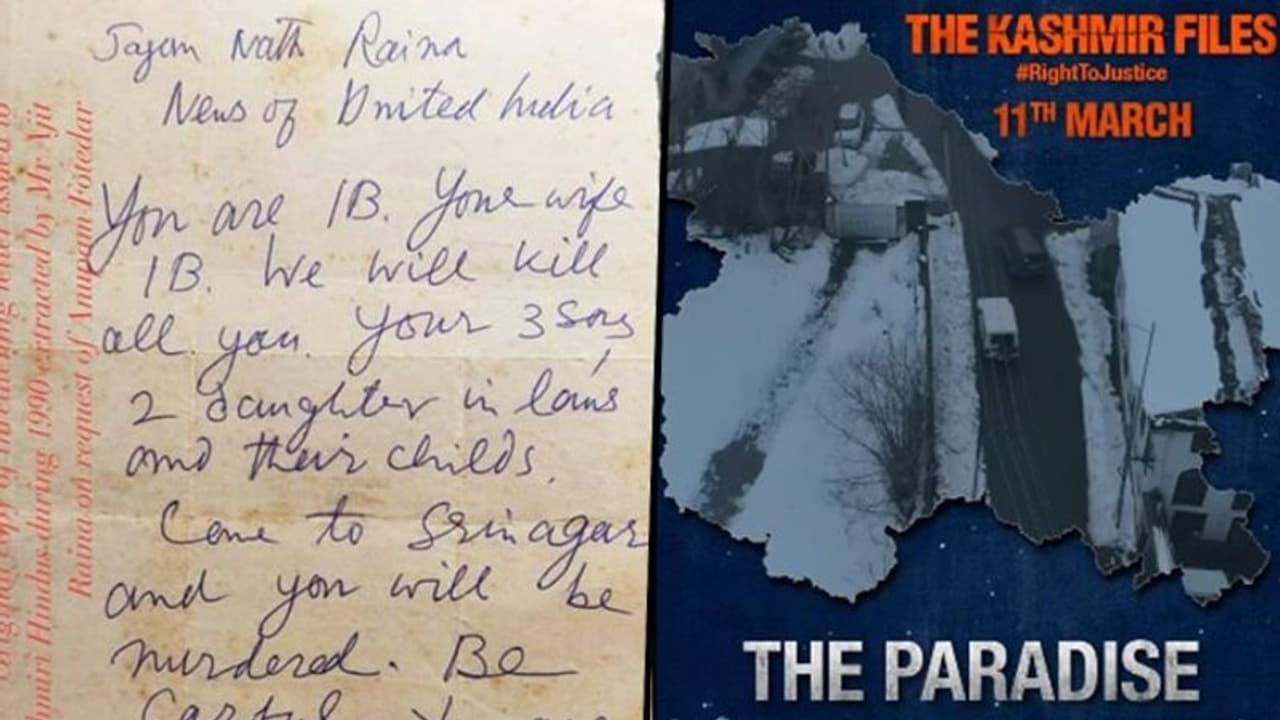 Jagan Nath Raina
News of United India
You are IB. Your wife
IB. We will kill
all you. Your 3 sons,
2 daughter in laws
and their childs.
Come to Srinagar
and you will be
murdered. Be
copy of threatening letter issued to
Hindus during 1990 extracted by Mr Ajit
Raina on request of Anupam Fotedar
THE KASHMIR FILES
#RightToJustice
11TH MARCH
THE PARADISE